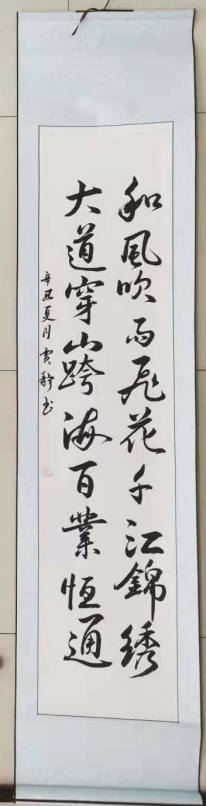 和風吹雨飛花千江錦綉
大道穿山跨海百業恒通
辛丑夏月賓靜书